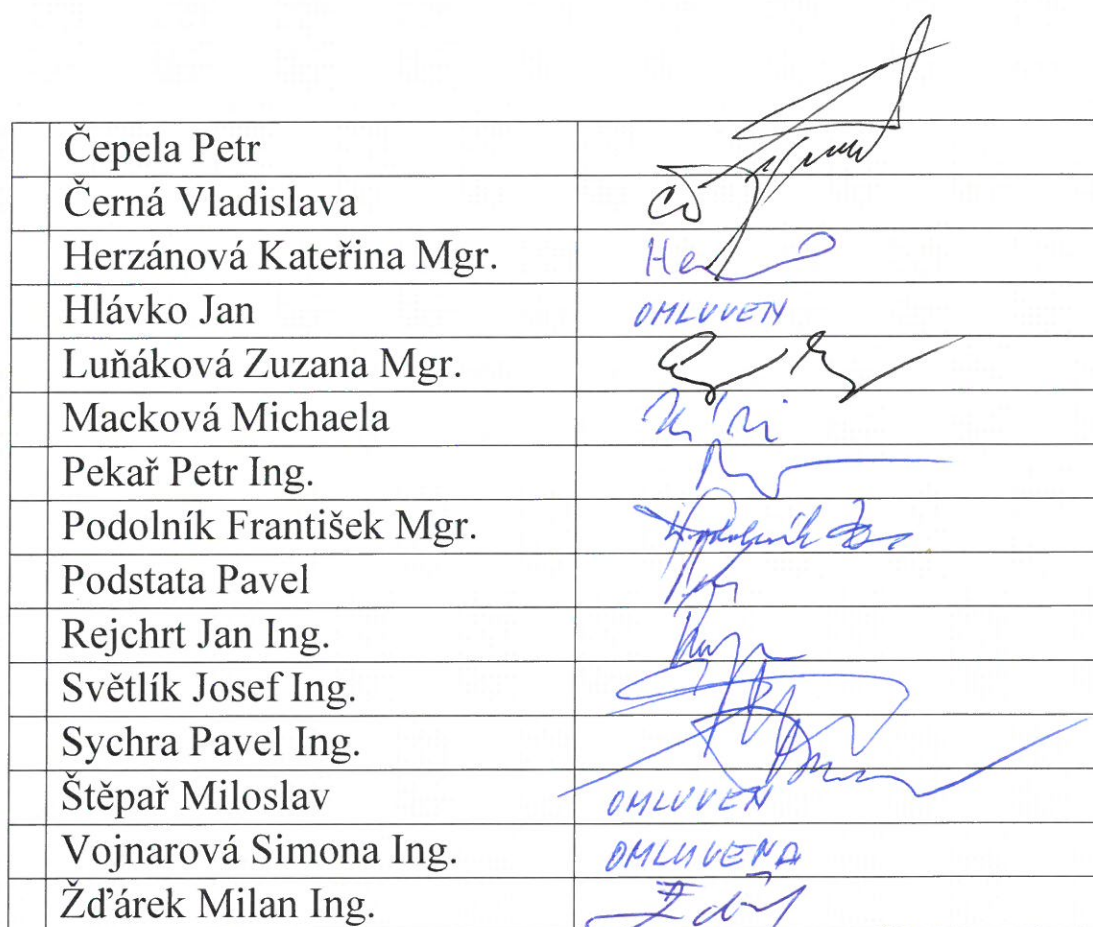 Čepela Petr
Černá Vladislava
Herzánová Kateřina Mgr.
Hlávko Jan OMLUVEN
Luňáková Zuzana Mgr.
Macková Michaela
Pekař Petr Ing.
Podolník František Mgr.
Podstata Pavel
Rejchrt Jan Ing.
Světlík Josef Ing.
Sychra Pavel Ing.
Štěpař Miloslav OMLUVEN
Vojnarová Simona Ing. OMLUVENA
Žďárek Milan Ing.